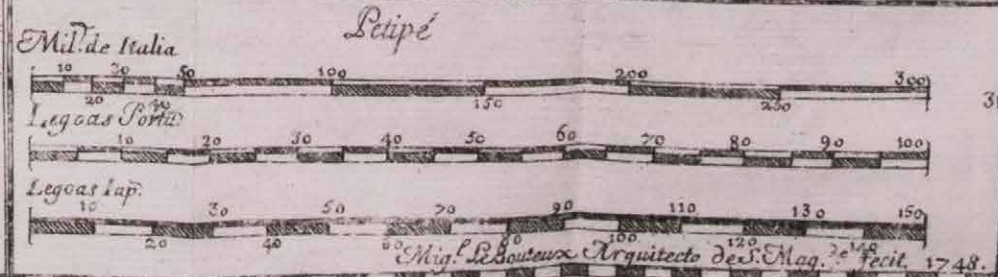 Petipé
Mil.ˢ de Italia
10 30 50 100 200 300
20 150 250
Legoas Portu.
10 20 30 40 50 60 70 80 90 100
Legoas Iap.
10 30 50 70 90 110 130 150
20 40 60 80 100 120 140
Mig.ˡ LeBouteux Arquitecto de S. Mag.ᵈᵉ fecit, 1748.